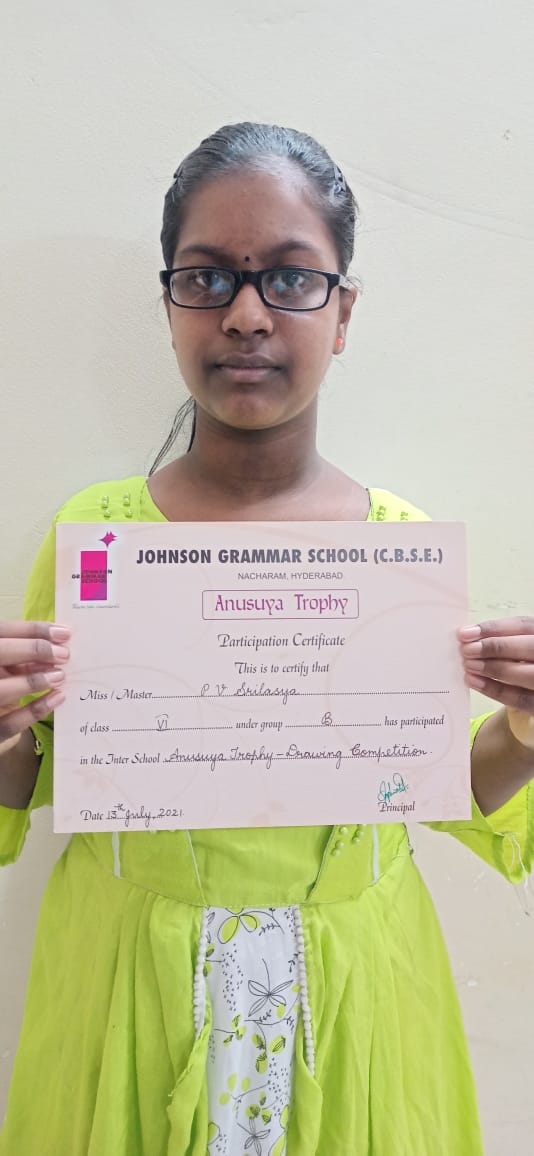 JOHNSON GRAMMAR SCHOOL
JOHNSON GRAMMAR SCHOOL (C.B.S.E.)
NACHARAM, HYDERABAD.
Anusuya Trophy
Participation Certificate
This is to certify that
Miss / Master P V Srilasya
of class VI under group B has participated
in the Inter School Anusuya Trophy - Drawing Competition.
Principal
Date 13th July, 2021.